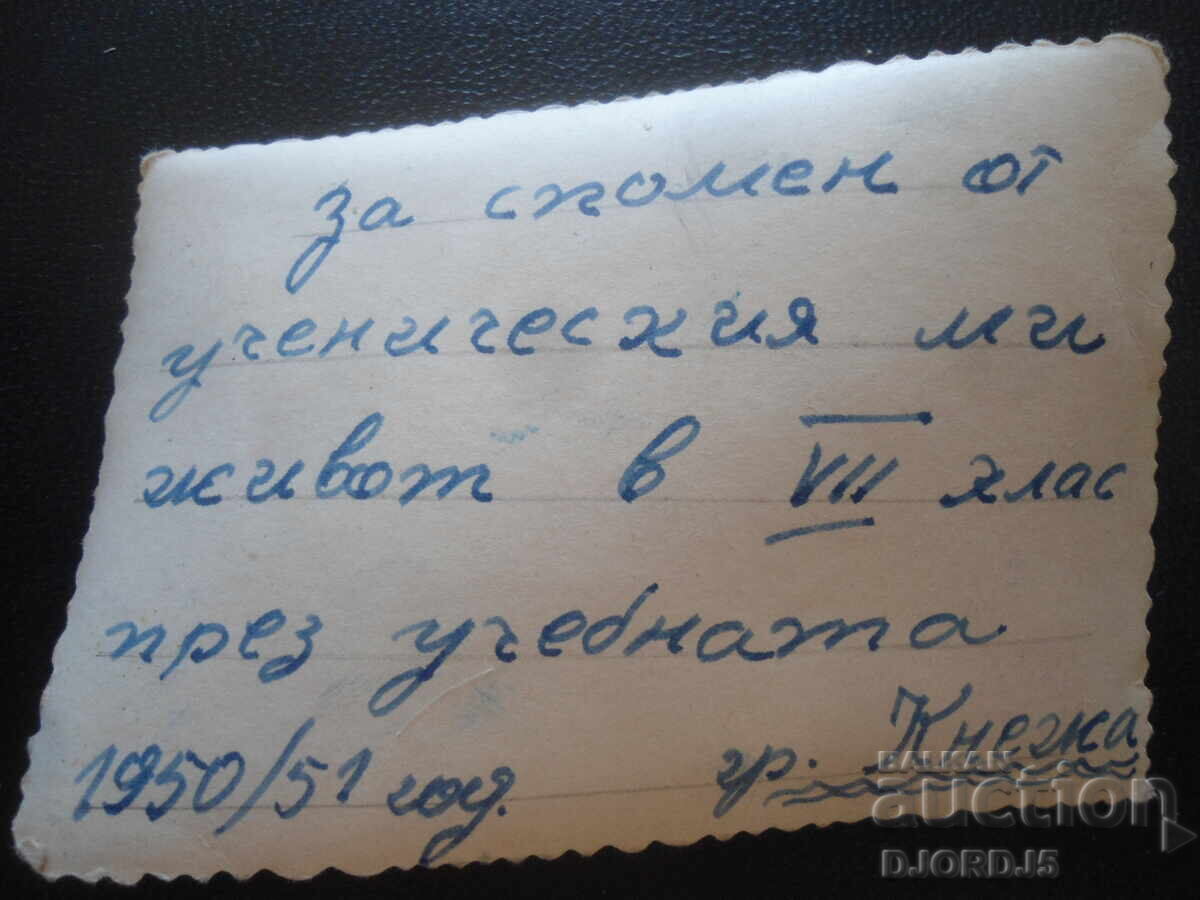 за спомен от
ученическия ми
живот в VII клас
през учебната
1950/51 год. гр. Кнежа
BALKAN
auction
DJORDJ5